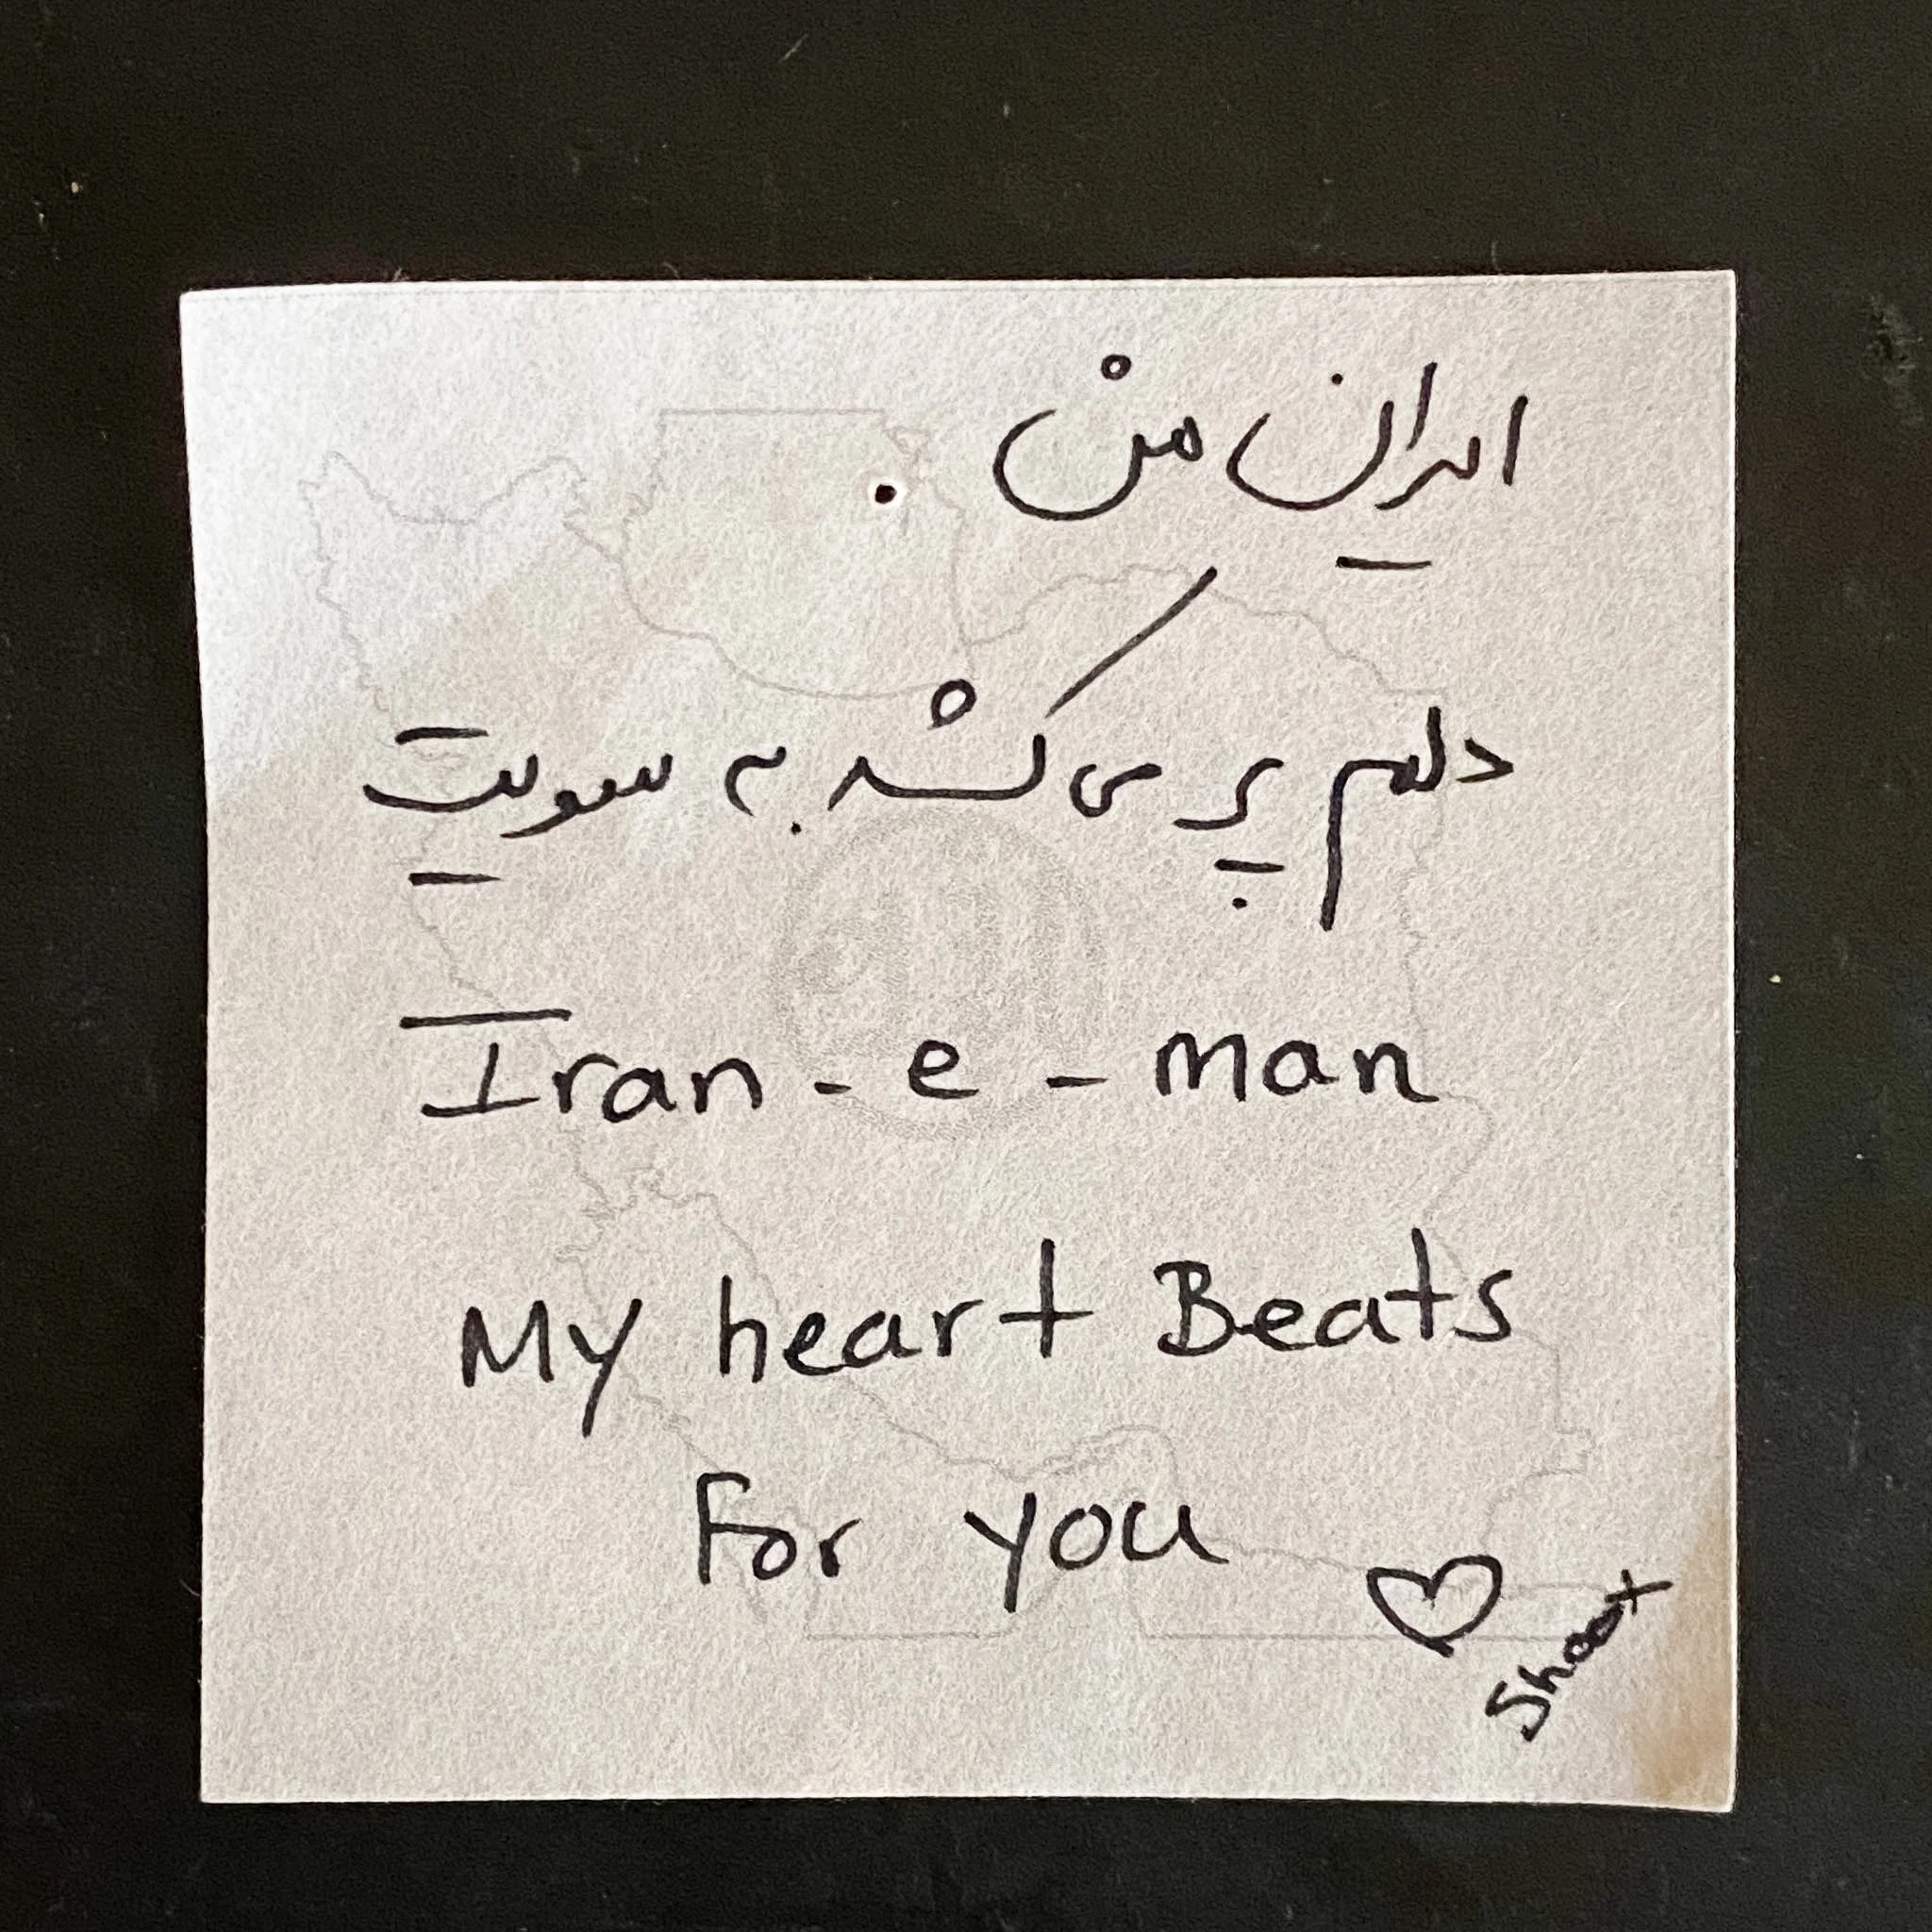 ایران من
دلم پر می کشد به سویت
Iran - e - man
My heart Beats
For you